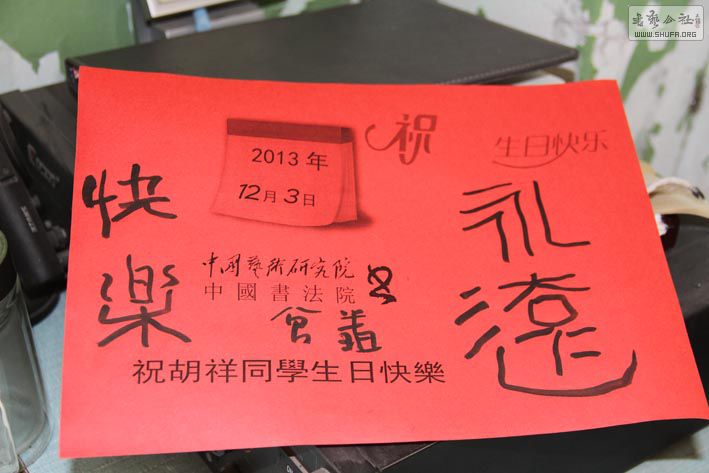 書藝公社
WWW.SHUFA.ORG
祝
生日快乐
2013年
12月3日
永遠
快樂
中國藝術研究院
中國書法院
祝胡祥同學生日快樂